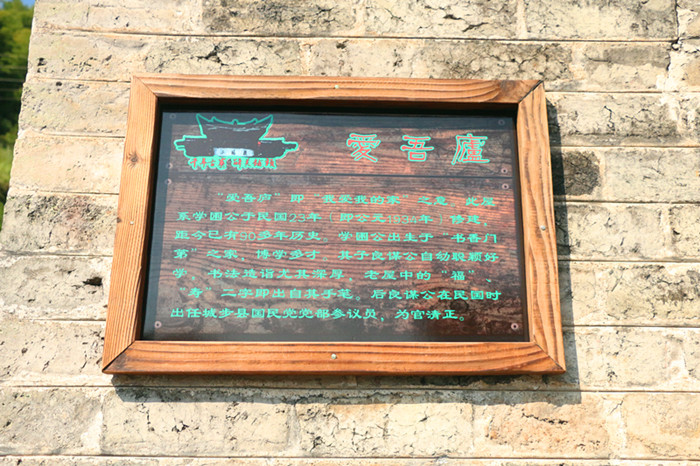 愛吾廬
“爱吾庐”即“我爱我的家”之意，此屋
系学圃公于民国23年（即公元1934年）修建，
距今已有90多年历史。学圃公出生于“书香门
第”之家，博学多才，其子良谋公自幼聪颖好
学，书法造诣尤其深厚，老屋中的“福”、
“寿”二字即出自其手笔。后良谋公在民国时
出任城步县国民党党部参议员，为官清正。